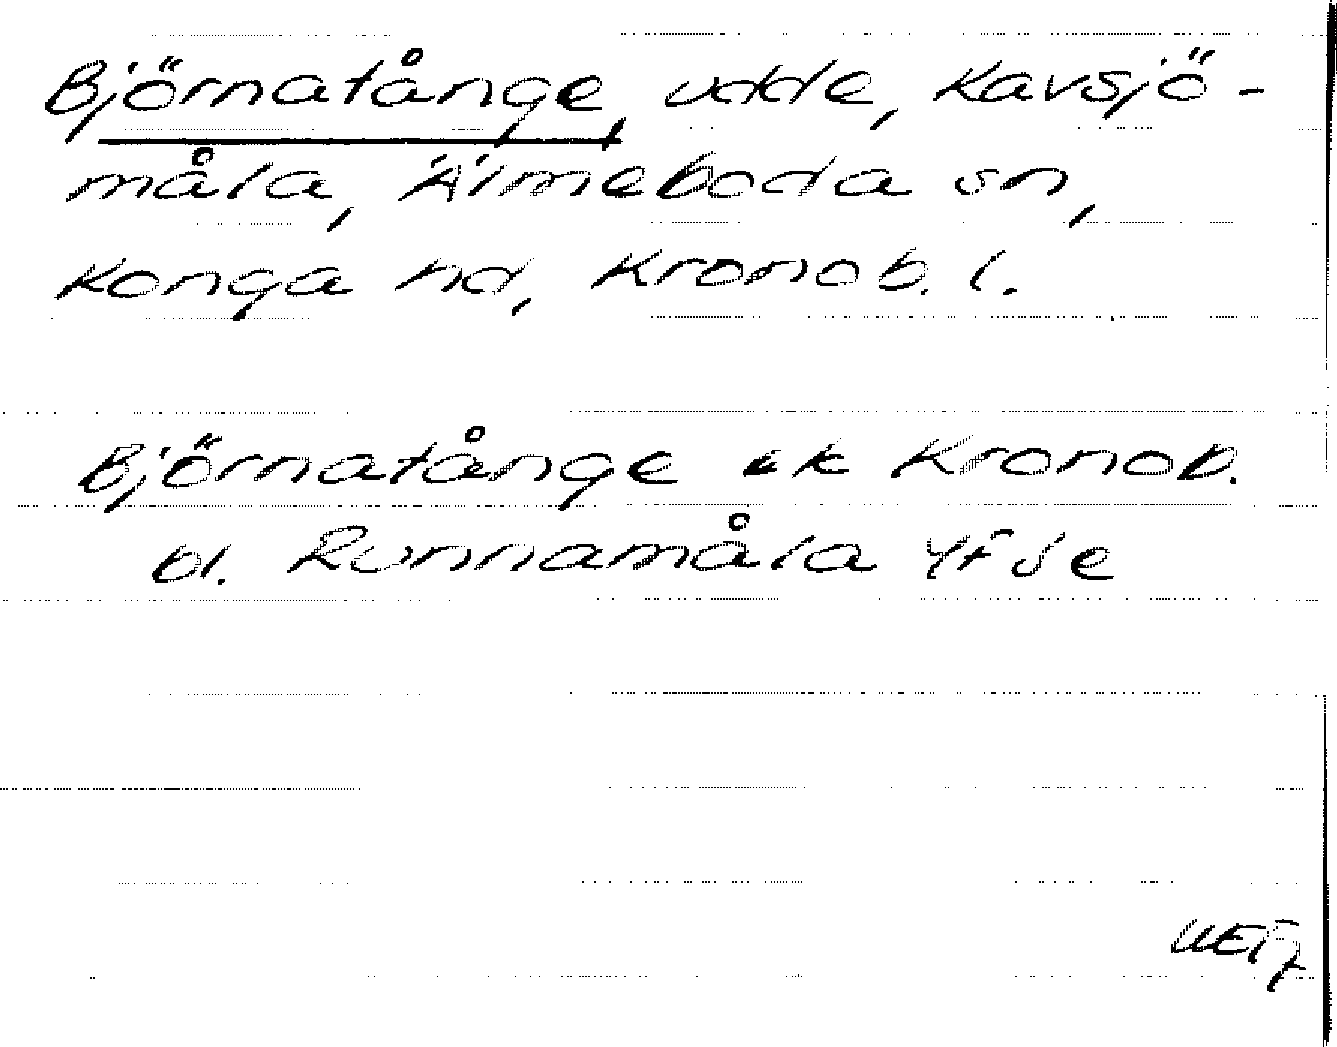 Björnatånge, udde, Kavsjö-
måla, Älmeboda sn,
Konga hd, Kronob. l.
Björnatånge ek Kronob.
bl. Runnamåla 4F Je